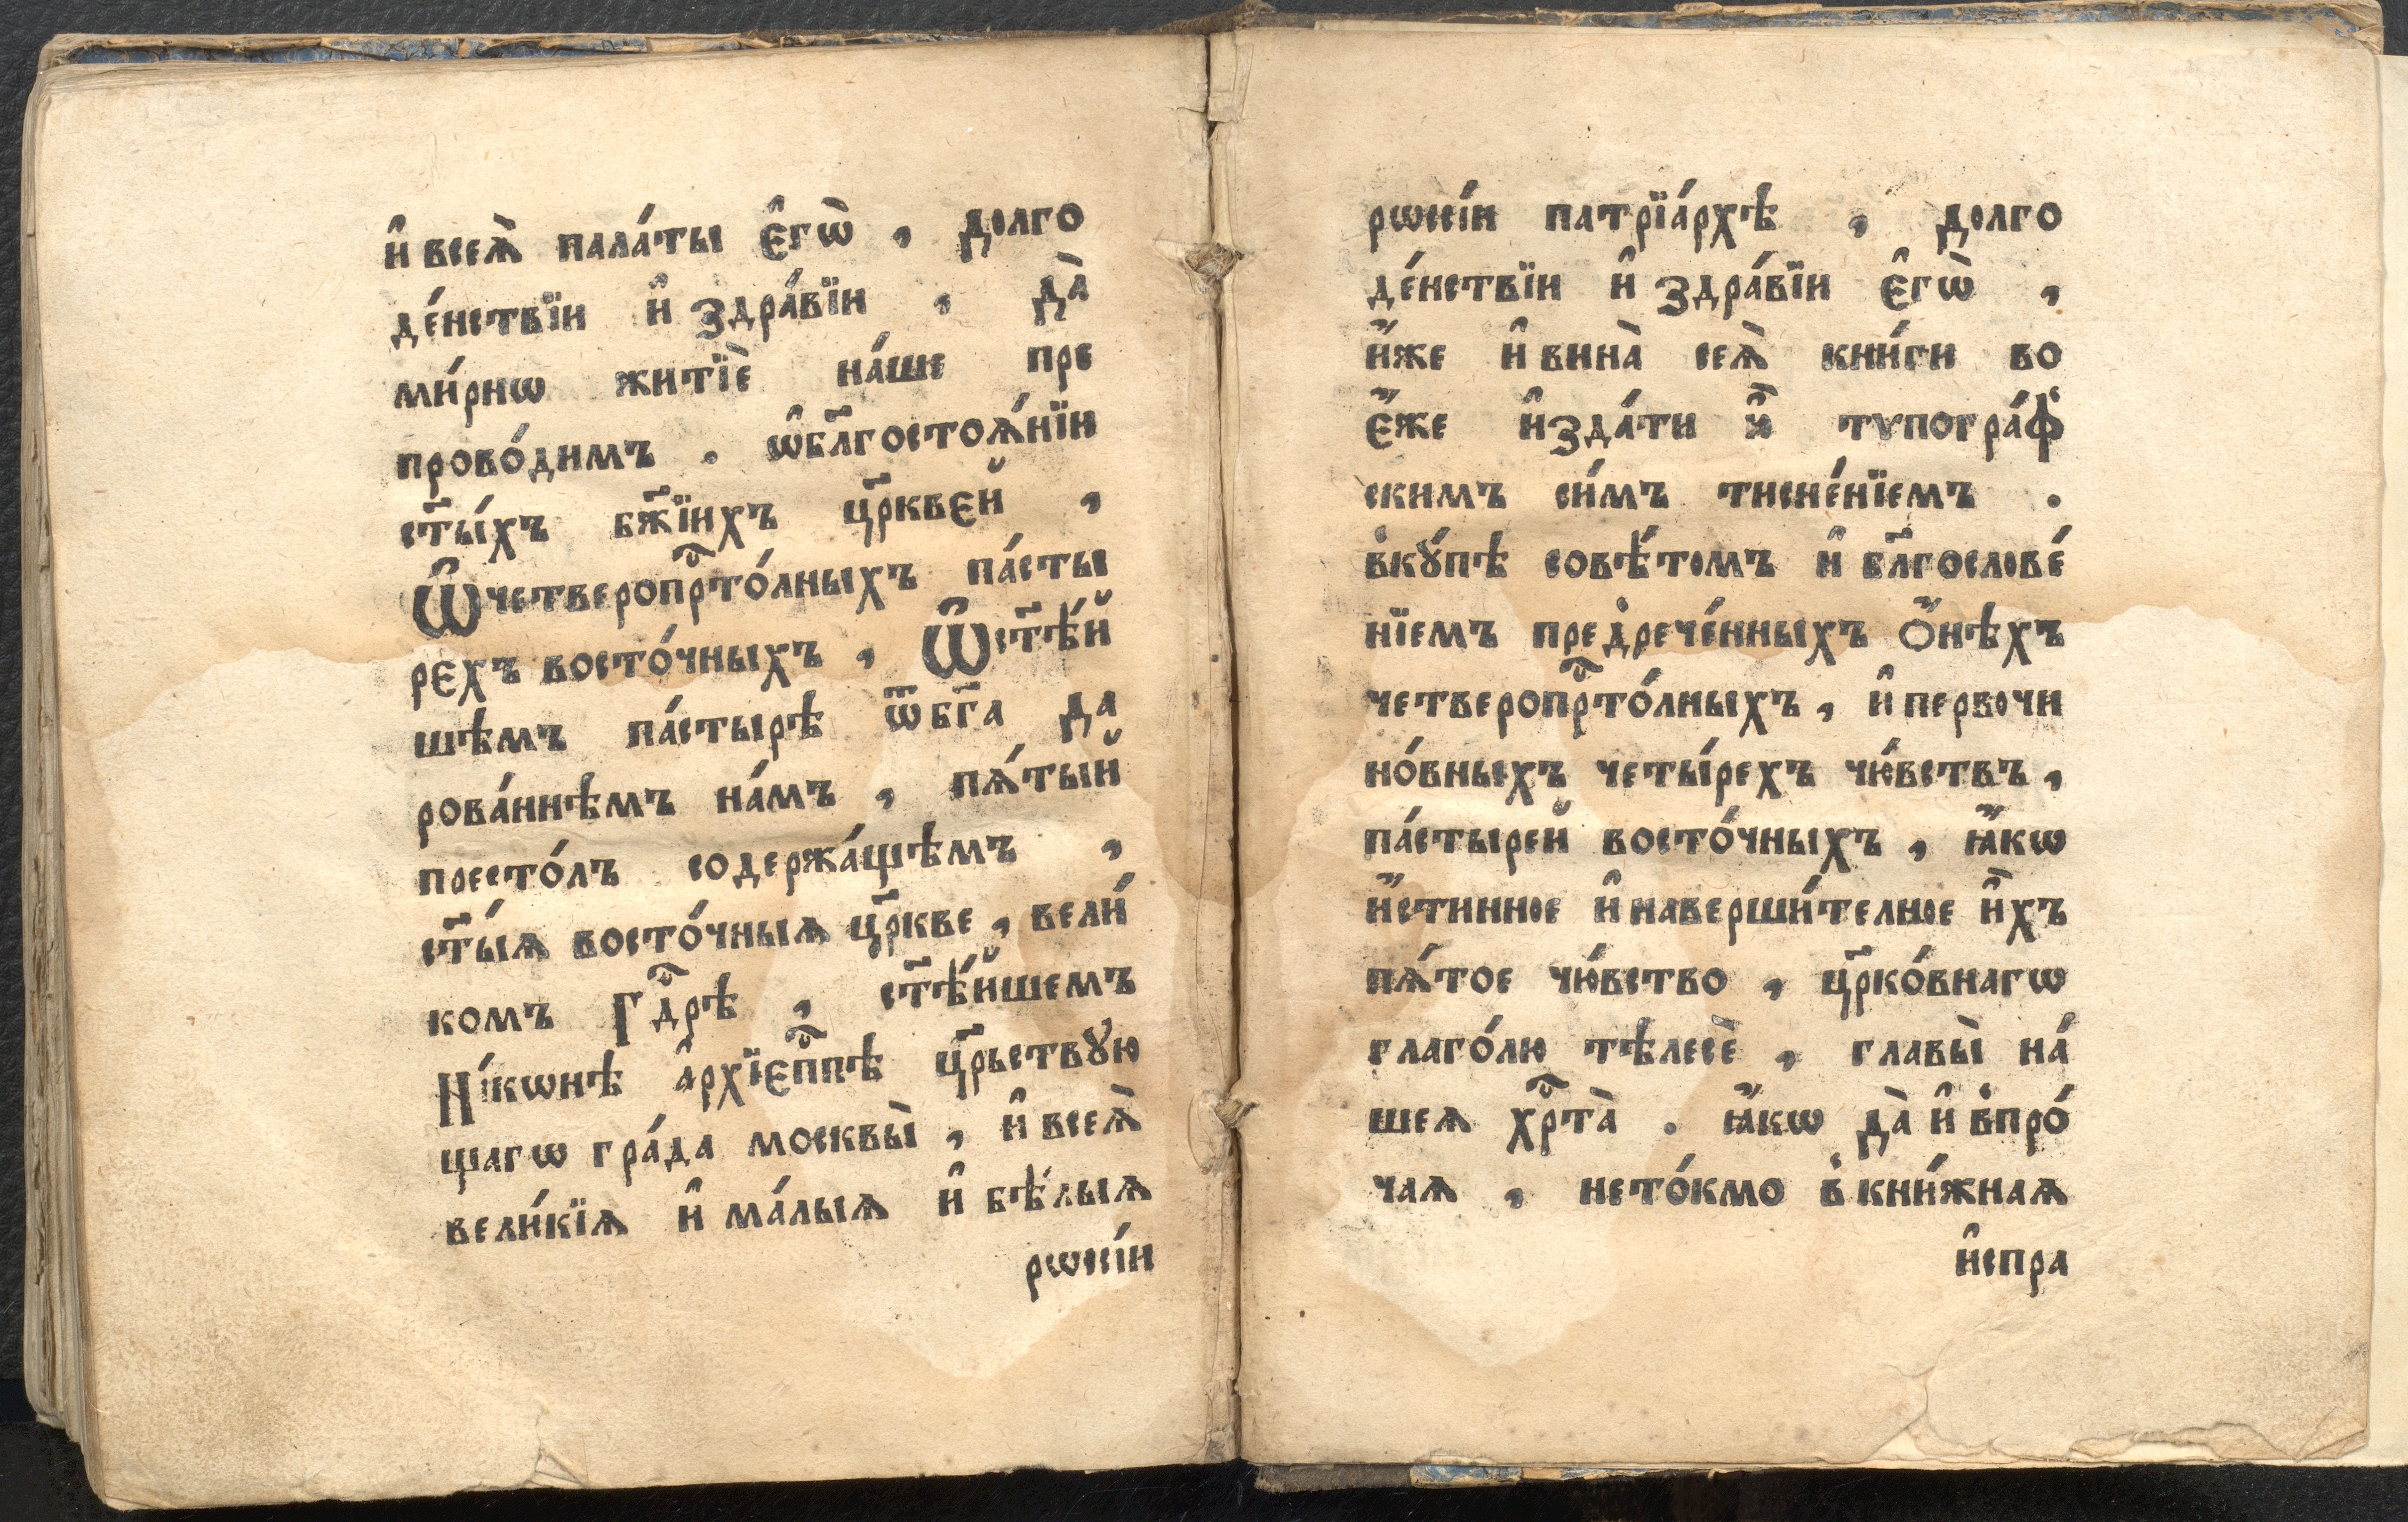 и҆ всеѧ̀ пала́ты є҆гѡ̀ , долго
де́нствїи и҆ здра́вїи , да̀
ми́рнѡ житїѐ на́ше пре
прово́димъ . ѡ҆бл҃гостоѧ́нїи
ст҃ы́хъ бж҃їихъ цр҃квей ,
Ѡ҆четверопрⷭ҇то́лныхъ па́сты
рехъ восто́чныхъ , Ѡ҆ст҃ѣ́й
шѣмъ па́стырѣ ѿбг҃а да
рова́ннѣмъ на́мъ , пѧ́тый
престо́лъ содержа́щѣмъ ,
ст҃ы́ѧ восто́чныѧ цр҃кве , вели́
комъ Гдⷭ҇рѣ , ст҃ѣ́йшемъ
Ні́кѡнѣ а҆рхїєпⷭ҇пѣ цр҃ьствꙋ́ю
щагѡ гра́да москвы̀ , и҆ всеѧ̀
вели́кїѧ и҆ ма́лыѧ и҆ бѣ́лыѧ
рѡсі́и
рѡсі́и патрїа́рхѣ , долго
де́нствїи и҆ здра́вїи є҆гѡ̀ ,
и҆́же и҆ вина̀ сеѧ̀ кни́ги во
є҆́же и҆зда́ти и҆̀ тѵпогра́ф
скимъ си́мъ тисне́нїемъ .
вкꙋ́пѣ совѣ́томъ и҆ бл҃гослове́
нїемъ предрече́нныхъ ѻ҆́нѣхъ
четверопрⷭ҇то́лныхъ , и҆ первочи
но́вныхъ четы́рехъ чю́вствъ ,
па́стырей восто́чныхъ , ꙗ҆́кѡ
и҆́стинное и҆ наверши́телное и҆̀хъ
пѧ́тое чю́вство , цр҃ко́внагѡ
глаго́лю тѣлесѐ , главы̀ на́
шеѧ хрⷭ҇та̀ . ꙗ҆́кѡ да̀ и҆ впро́
чаѧ , нето́кмо в кни́жнаѧ
и҆спра